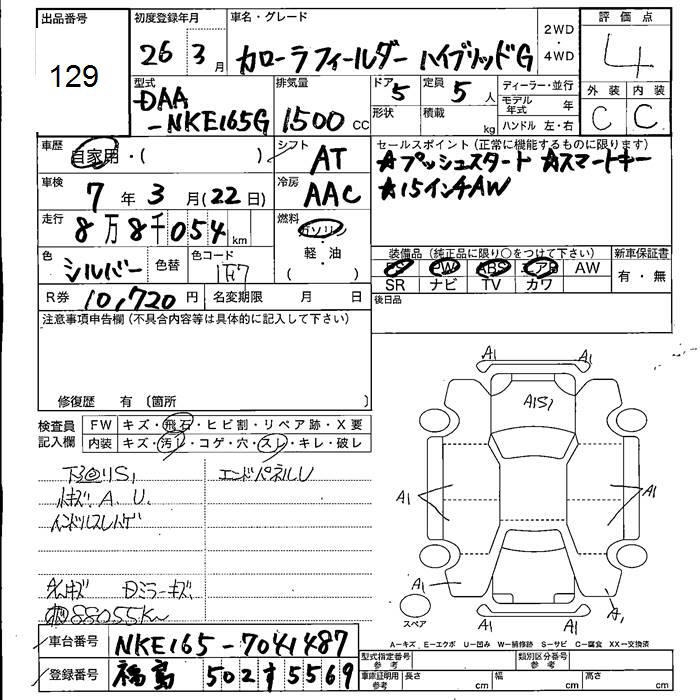 出品番号
129
初度登録年月
26 3月
車名・グレード
カローラフィールダー ハイブリッドG
2WD
・
4WD
評価点
4
外装 内装
C C
型式
DAA
-NKE165G
排気量
1500 cc
ドア 5
形状
定員 5 人
積載 kg
ディーラー・並行
モデル年式 年
ハンドル 左・右
車歴
自家用・( )
シフト
AT
セールスポイント (正常に機能するものに限ります)
☆プッシュスタート ☆スマートキー
☆15インチAW
車検
7年3月(22日)
冷房
AAC
走行
8万8千054km
燃料
ガソリン
・
軽・油
( )
色
シルバー
色替
色コード
1F7
装備品 (純正品に限り○をつけて下さい)
PS PW ABS エアB AW
SR ナビ TV カワ
新車保証書
有・無
R券 10,720円
名変期限 月 日
後日品
注意事項申告欄 (不具合内容等は具体的に記入して下さい)
修復歴 有 〔箇所 〕
検査員
記入欄
FW キズ・飛石・ヒビ割・リペア跡・X要
内装 キズ・汚レ・コゲ・穴・スレ・キレ・破レ
下回りS1
エンドパネルU
小キズ.A.U.
ハンドルスレハゲ
Dミラーキズ.
88055km
A1
A1
A1S1
A1
A1
A1
A1
A1
A1
スペア
A-キズ E-エクボ U-凹み W-補修跡 S-サビ C-腐食 XX-交換済
車台番号 NKE165-7041487
登録番号 福島 502 す 5569
型式指定番号
参考
類別区分番号
参考
車庫証明用
参考
長さ cm 幅 cm 高さ cm